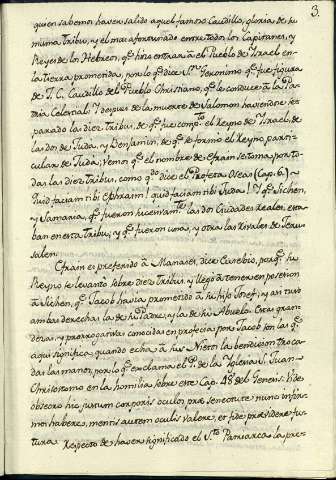 3.
quien sabemos haver salido aquel famoso Caudillo, gloria de su
misma Tribu, y el mas afortunado entre todos los Capitanes, y
Reyes de los Hebreos, qe hizo entrar a el Pueblo de Israel en
la tierra prometida, por lo qe dice Sn Geronimo qe fue figura
de J. C. Caudillo del Pueblo Christiano, qe le conduce a la Pa-
tria Celestial. Y despues de la muerte de Salomon haviendose se-
parado las diez tribus, de qe fue compto el Reyno de Israel, de
las dos de Juda, y Benjamin, de qe se formó el Reyno parti-
cular de Juda; Vemos qe el nombre de Efrain se toma por to-
das las diez tribus, como qdo dice el Profeta Oseas (Cap. 6.)
Quid faciam tibi Ephraim! quid faciam tibi Juda! Y qe Sichen,
y Samaria, qe fueron las dos Ciudades Reales, esta-
ban en esta Tribu, y qe fueron una, y otra las Rivales de Jeru-
salen.
Efrain es preferido à Manases, dice Eusebio, porqe su
Reyno se levantó sobre diez Tribus, y llegó a tener en posesion
a Sichen, qe Jacob havia prometido a su hijo Josef; y asi tuvo
ambas derechas la de su Padre, y la de su Abuelo. Estas gran-
dezas, y prorrogativas conocidas en profecia por Jacob son las qe
aqui significa quando echa à sus Nietos la bendicion troca-
das las manos, por lo qe exclama el Pe de la Iglesia S. Juan
Chrisostomo en la homilia sobre este Cap. 48 del Genesis: Vide
obsecro hic justum corporis oculos præ senectute nunc infir-
mos haberes, mentis autem oculis valere, et fide prævidere fu-
tura.
Respecto de haver significado el Sto Patriarca la pre-